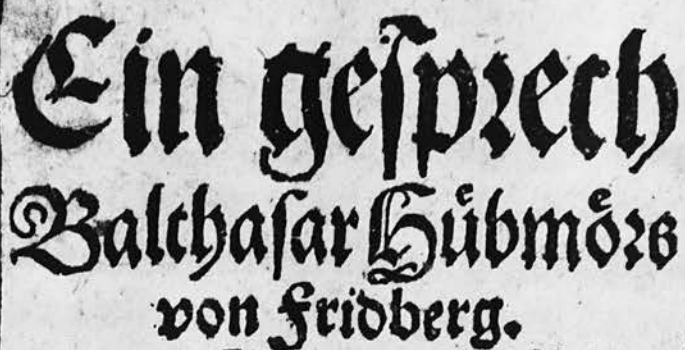 Ein geſprech
Balthaſar Huͤbmoͤrs
von Fridberg.